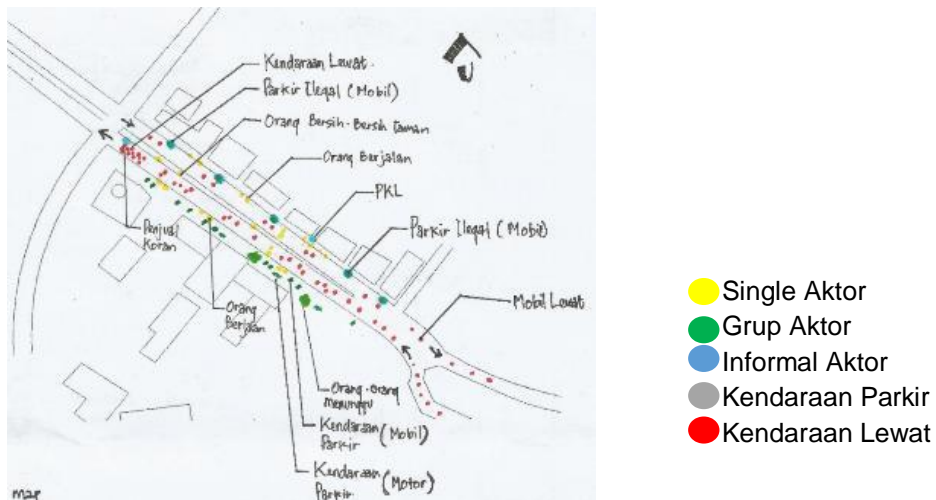 Kendaraan Lewat.
Parkir Ilegal (Mobil)
Orang Bersih-Bersih Taman
Orang Berjalan
PKL
Parkir Ilegal (Mobil)
Mobil Lewat
Penjual
Koran
Orang
Berjalan
Orang-orang
menunggu
Kendaraan (Mobil)
Parkir
Kendaraan (Motor)
Parkir
map
Single Aktor
Grup Aktor
Informal Aktor
Kendaraan Parkir
Kendaraan Lewat